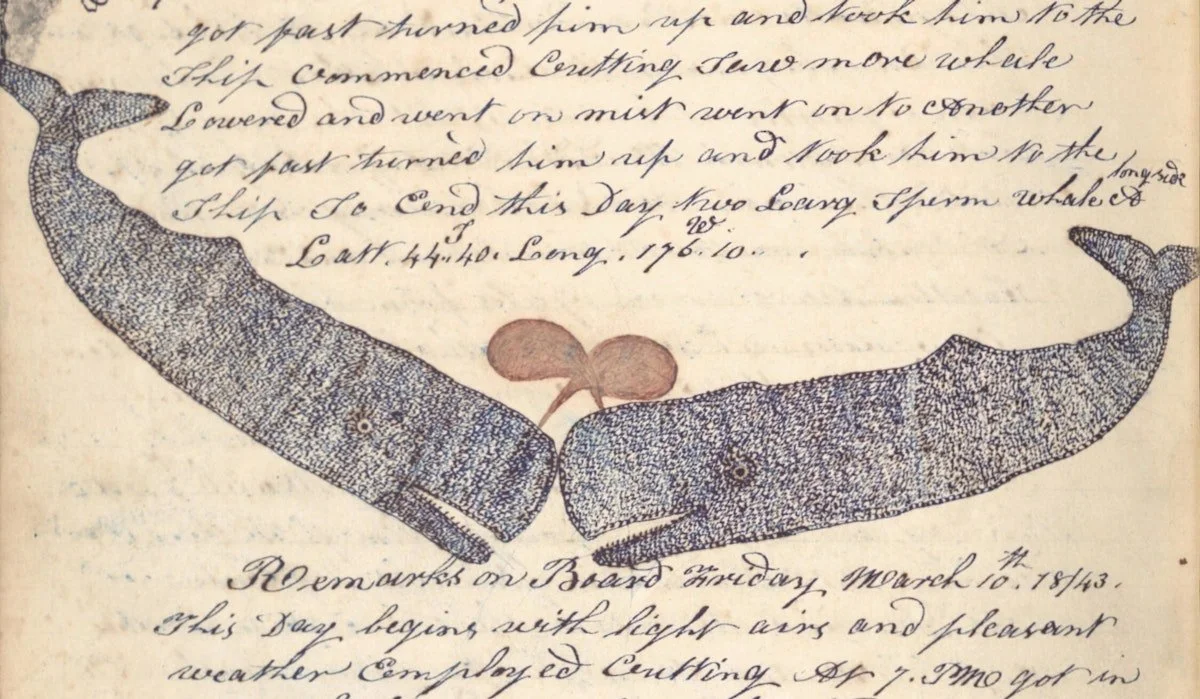 got fast turned him up and took him to the
Ship Commenced Cutting Saw more whale
Lowered and went on mist went on to Another
got fast turned him up and took him to the
longside
Ship So Ends this Day two Larg Sperm whale
Latt. 44.S 40. Long. 176.W 10. .
Remarks on Board Friday March 10th. 1843.
This Day begins with light airs and pleasant
weather Employed Cutting At 7. PM got in